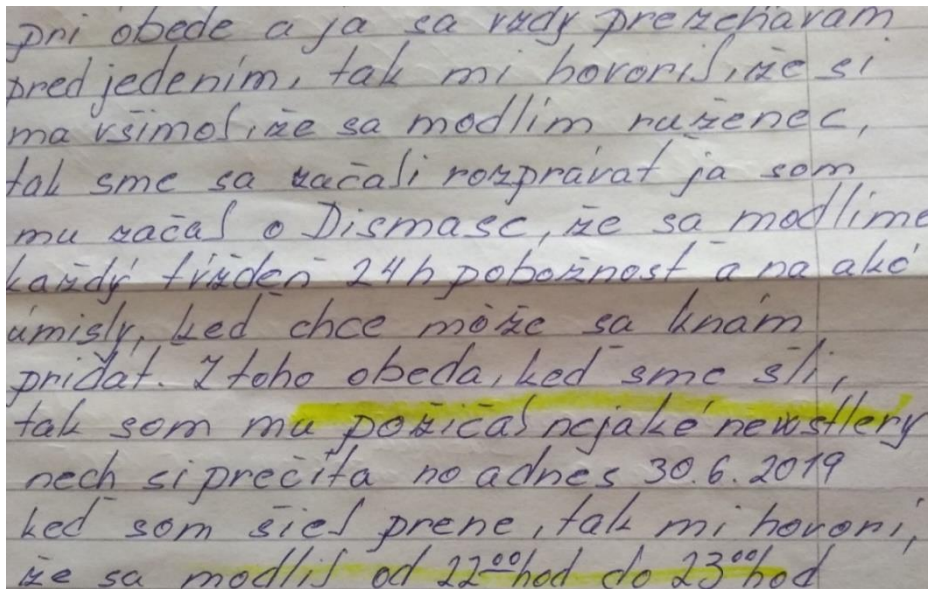 pri obede a ja sa vždy prežehávam
pred jedením, tak mi hovoril, že si
ma všimol, že sa modlím ruženec,
tak sme sa začali rozprávat ja som
mu začal o Dismase, že sa modlíme
každý tvížděň 24h pobožnost a na aké
úmisly, keď chce môže sa knám
pridat. Z toho obeda, keď sme šli,
tak som mu požičal nejaké newstlery
nech si prečíta no adnes 30.6.2019
keď som šiel prene, tak mi hovorí,
že sa modlil od 22⁰⁰ hod do 23⁰⁰ hod